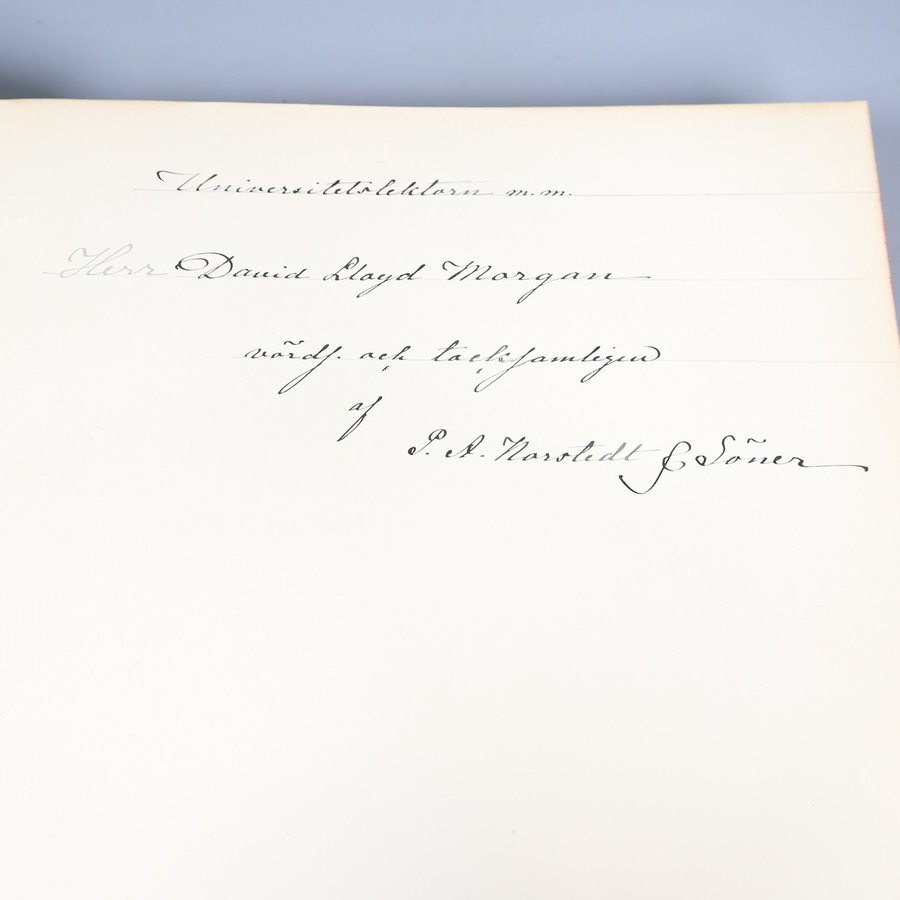 Universitetslektorn m.m.
Herr David Lloyd Morgan
vördf. och tacksamligen
af
P. A. Norstedt & Söner